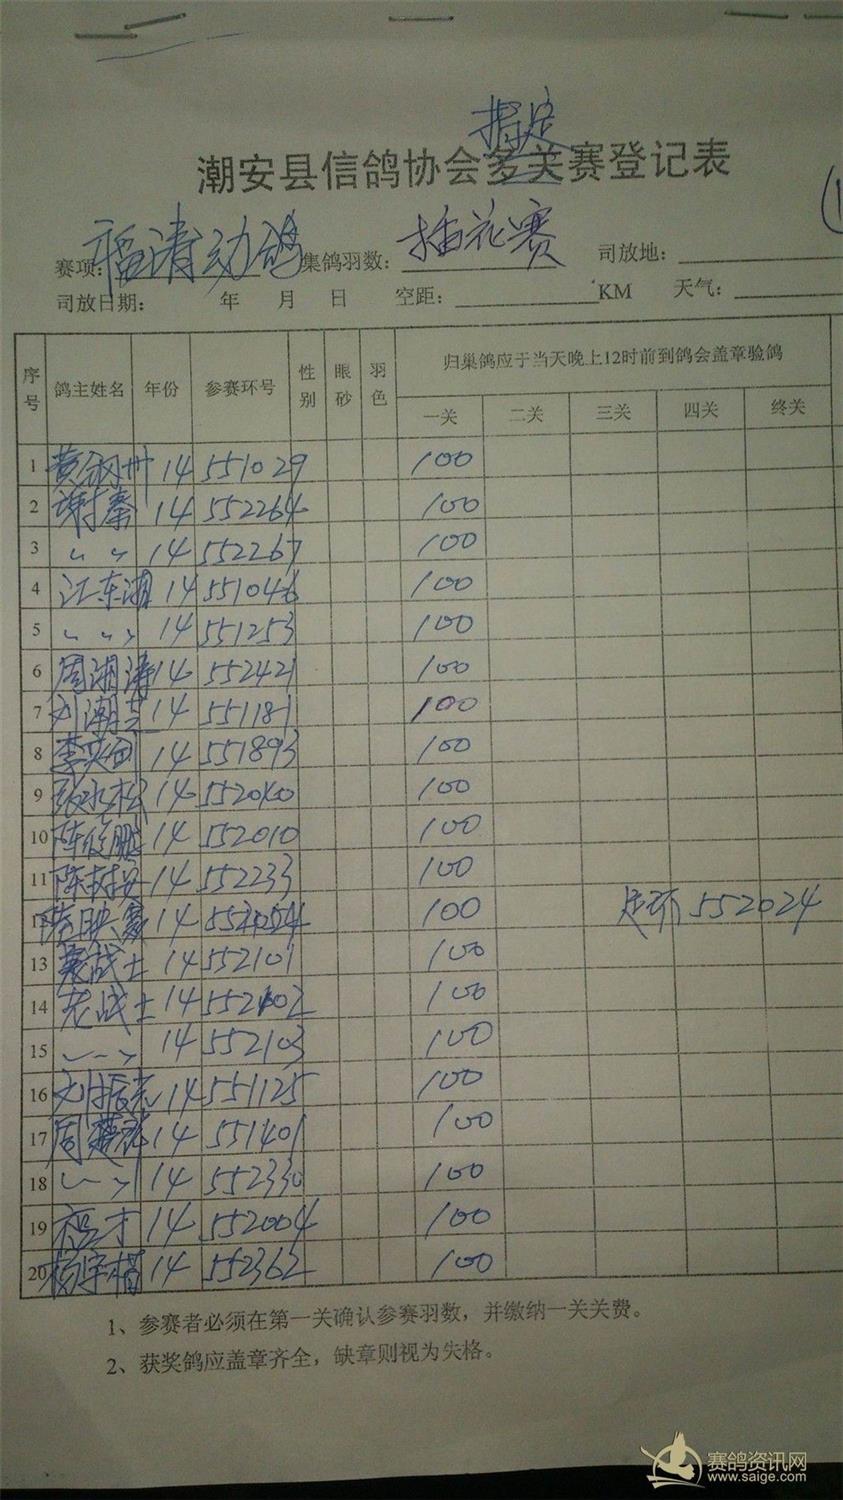 指定
潮安县信鸽协会多关赛登记表
(1
赛项: 福清幼鸽 集鸽羽数: 插花赛 司放地:
司放日期: 年 月 日 空距: KM 天气:
序号 鸽主姓名 年份 参赛环号 性别 眼砂 羽色 归巢鸽应于当天晚上12时前到鸽会盖章验鸽
一关 二关 三关 四关 终关
1 黄 14 551029 100
2 谢秦 14 552264 100
3 〃 〃 14 552267 100
4 江东湘 14 551046 100
5 〃 〃 14 551253 100
6 周湘涛 14 552421 100
7 刘潮芝 14 551181 100
8 李 14 551893 100
9 张永松 14 100
10 陈俊鹏 14 552010 100
11 陈树安 14 552233 100
12 陈映 14 100 足环 552024
13 战士 14 552101 100
14 老战士 14 552102 100
15 〃 〃 14 552103 100
16 刘振 14 551125 100
17 周 14 551401 100
18 〃 〃 14 552330 100
19 才 14 552004 100
20 杨宇楷 14 552362 100
1、参赛者必须在第一关确认参赛羽数，并缴纳一关关费。
2、获奖鸽应盖章齐全，缺章则视为失格。
赛鸽资讯网
www.saige.com